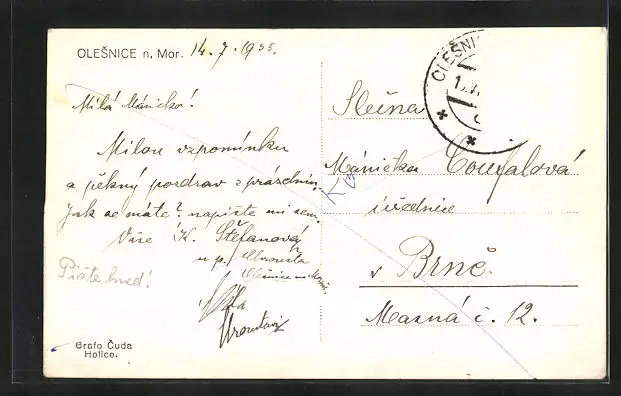 OLEŠNICE n. Mor. 14.7.1935.
Milá Máničko!
Milou vzpomínku
a pěkný pozdrav z prázdnin.
Jak se máte? napište mi sem.
Vaše K. Štefanová
u p.
Olešnice na Mor.
Pište hned!
Grafo Čuda
Holice.
OLEŠNI
Slečna
Mánička Coufalová
úřednice
v Brně.
Masná č. 12.